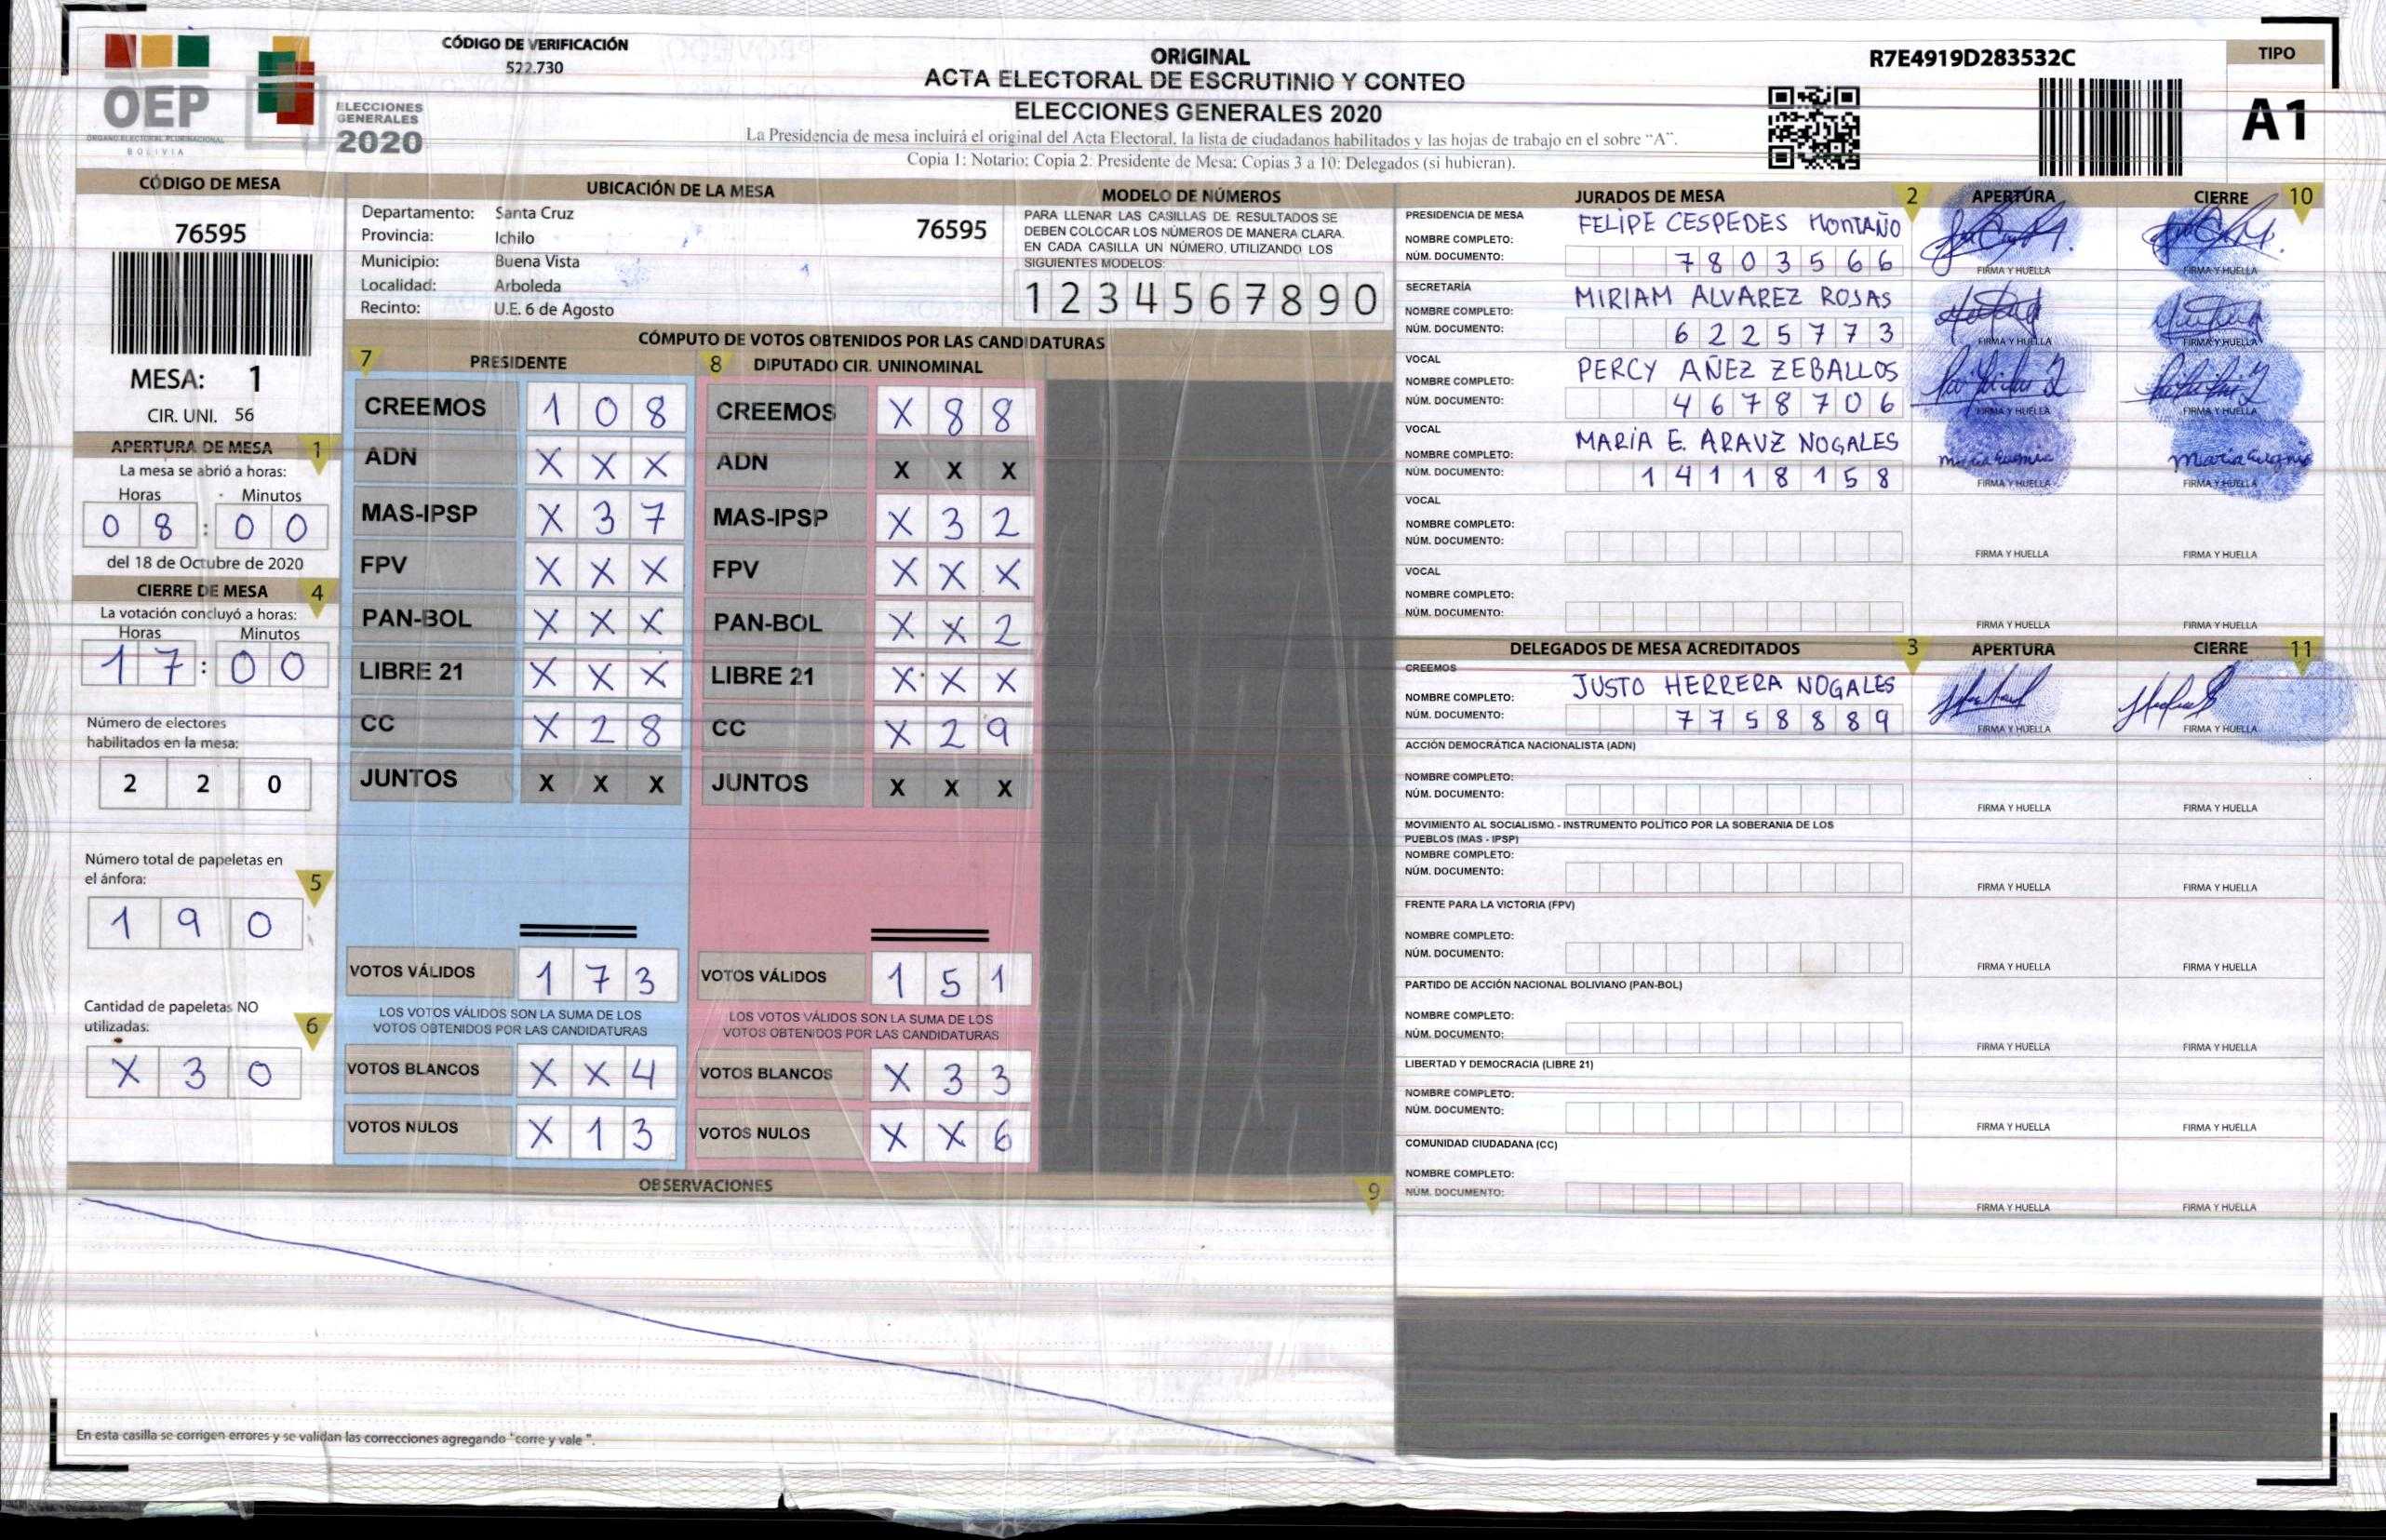 OEP
ÓRGANO ELECTORAL PLURINACIONAL
BOLIVIA
ELECCIONES
GENERALES
2020
CÓDIGO DE VERIFICACIÓN
522.730
ORIGINAL
ACTA ELECTORAL DE ESCRUTINIO Y CONTEO
ELECCIONES GENERALES 2020
La Presidencia de mesa incluirá el original del Acta Electoral, la lista de ciudadanos habilitados y las hojas de trabajo en el sobre "A".
Copia 1: Notario; Copia 2: Presidente de Mesa; Copias 3 a 10: Delegados (si hubieran).
R7E4919D283532C
TIPO
A1
CÓDIGO DE MESA
76595
MESA: 1
CIR. UNI. 56
APERTURA DE MESA 1
La mesa se abrió a horas:
Horas Minutos
08:00
del 18 de Octubre de 2020
CIERRE DE MESA 4
La votación concluyó a horas:
Horas Minutos
17:00
Número de electores
habilitados en la mesa:
2 2 0
Número total de papeletas en
el ánfora: 5
1 9 0
Cantidad de papeletas NO
utilizadas: 6
X 3 0
UBICACIÓN DE LA MESA
Departamento: Santa Cruz
Provincia: Ichilo
76595
Municipio: Buena Vista
Localidad: Arboleda
Recinto: U.E. 6 de Agosto
MODELO DE NÚMEROS
PARA LLENAR LAS CASILLAS DE RESULTADOS SE
DEBEN COLOCAR LOS NÚMEROS DE MANERA CLARA.
EN CADA CASILLA UN NÚMERO, UTILIZANDO LOS
SIGUIENTES MODELOS:
1 2 3 4 5 6 7 8 9 0
CÓMPUTO DE VOTOS OBTENIDOS POR LAS CANDIDATURAS
7 PRESIDENTE
CREEMOS 1 0 8
ADN X X X
MAS-IPSP X 3 7
FPV X X X
PAN-BOL X X X
LIBRE 21 X X X
CC X 2 8
JUNTOS X X X
VOTOS VÁLIDOS 1 7 3
LOS VOTOS VÁLIDOS SON LA SUMA DE LOS
VOTOS OBTENIDOS POR LAS CANDIDATURAS
VOTOS BLANCOS X X 4
VOTOS NULOS X 1 3
8 DIPUTADO CIR. UNINOMINAL
CREEMOS X 8 8
ADN X X X
MAS-IPSP X 3 2
FPV X X X
PAN-BOL X X 2
LIBRE 21 X X X
CC X 2 9
JUNTOS X X X
VOTOS VÁLIDOS 1 5 1
LOS VOTOS VÁLIDOS SON LA SUMA DE LOS
VOTOS OBTENIDOS POR LAS CANDIDATURAS
VOTOS BLANCOS X 3 3
VOTOS NULOS X X 6
OBSERVACIONES 9
En esta casilla se corrigen errores y se validan las correcciones agregando "corre y vale".
JURADOS DE MESA 2 APERTURA CIERRE 10
PRESIDENCIA DE MESA
NOMBRE COMPLETO: FELIPE CESPEDES MONTAÑO
NÚM. DOCUMENTO: 7803566
FIRMA Y HUELLA FIRMA Y HUELLA
SECRETARÍA
NOMBRE COMPLETO: MIRIAM ALVAREZ ROJAS
NÚM. DOCUMENTO: 6225773
FIRMA Y HUELLA FIRMA Y HUELLA
VOCAL
NOMBRE COMPLETO: PERCY AÑEZ ZEBALLOS
NÚM. DOCUMENTO: 4678706
FIRMA Y HUELLA FIRMA Y HUELLA
VOCAL
NOMBRE COMPLETO: MARIA E. ARAUZ NOGALES
NÚM. DOCUMENTO: 14118158
FIRMA Y HUELLA FIRMA Y HUELLA
VOCAL
NOMBRE COMPLETO:
NÚM. DOCUMENTO:
FIRMA Y HUELLA FIRMA Y HUELLA
VOCAL
NOMBRE COMPLETO:
NÚM. DOCUMENTO:
FIRMA Y HUELLA FIRMA Y HUELLA
DELEGADOS DE MESA ACREDITADOS 3 APERTURA CIERRE 11
CREEMOS
NOMBRE COMPLETO: JUSTO HERRERA NOGALES
NÚM. DOCUMENTO: 7758889
FIRMA Y HUELLA FIRMA Y HUELLA
ACCIÓN DEMOCRÁTICA NACIONALISTA (ADN)
NOMBRE COMPLETO:
NÚM. DOCUMENTO:
FIRMA Y HUELLA FIRMA Y HUELLA
MOVIMIENTO AL SOCIALISMO - INSTRUMENTO POLÍTICO POR LA SOBERANIA DE LOS
PUEBLOS (MAS - IPSP)
NOMBRE COMPLETO:
NÚM. DOCUMENTO:
FIRMA Y HUELLA FIRMA Y HUELLA
FRENTE PARA LA VICTORIA (FPV)
NOMBRE COMPLETO:
NÚM. DOCUMENTO:
FIRMA Y HUELLA FIRMA Y HUELLA
PARTIDO DE ACCIÓN NACIONAL BOLIVIANO (PAN-BOL)
NOMBRE COMPLETO:
NÚM. DOCUMENTO:
FIRMA Y HUELLA FIRMA Y HUELLA
LIBERTAD Y DEMOCRACIA (LIBRE 21)
NOMBRE COMPLETO:
NÚM. DOCUMENTO:
FIRMA Y HUELLA FIRMA Y HUELLA
COMUNIDAD CIUDADANA (CC)
NOMBRE COMPLETO:
NÚM. DOCUMENTO:
FIRMA Y HUELLA FIRMA Y HUELLA